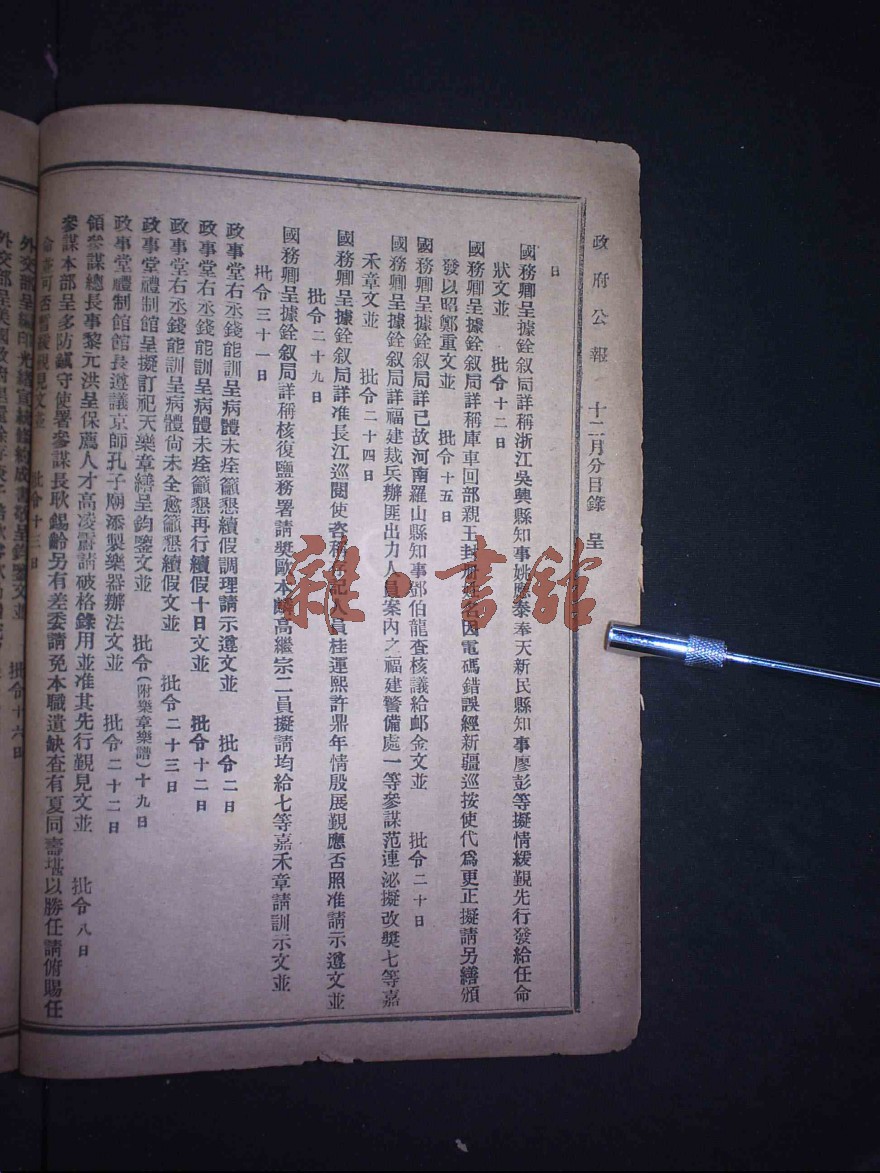 政府公報 十二月分目錄 呈
日
國務卿呈據銓叙局詳稱浙江吳興縣知事姚應泰奉天新民縣知事廖彭等擬情緩覲先行發給任命
狀文並 批令十二日
國務卿呈據銓叙局詳稱庫車回部親王封册姓名因電碼錯誤經新疆巡按使代爲更正擬請另繕頒
發以昭鄭重文並 批令十五日
國務卿呈據銓叙局詳已故河南羅山縣知事鄧伯龍查核議給卹金文並 批令二十日
國務卿呈據銓叙局詳福建裁兵辦匪出力人員案內之福建警備處一等參謀范連泌擬改奬七等嘉
禾章文並 批令二十四日
國務卿呈據銓叙局詳准長江巡閱使咨稱存記人員桂運熙許鼎年情殷展覲應否照准請示遵文並
批令二十九日
國務卿呈據銓叙局詳稱核復鹽務署請奬歐本麟高繼宗二員擬請均給七等嘉禾章請訓示文並
批令三十一日
政事堂右丞錢能訓呈病體未痊籲懇續假調理請示遵文並 批令二日
政事堂右丞錢能訓呈病體未痊籲懇再行續假十日文並 批令十二日
政事堂右丞錢能訓呈病體尚未全愈籲懇續假文並 批令二十三日
政事堂禮制館呈擬訂祀天樂章繕呈鈞鑒文並 批令(附樂章樂譜)十九日
政事堂禮制館館長遵議京師孔子廟添製樂器辦法文並 批令二十二日
領參謀總長事黎元洪呈保薦人才高凌霨請破格錄用並准其先行覲見文並 批令八日
參謀本部呈多防鎮守使署參謀長耿錫齡另有差委請免本職遺缺查有夏同壽堪以勝任請俯賜任
命並可否暫緩覲見文並 批令十三日
外交部呈編印光緒宣統條約成書敬呈鈞鑒文並 批令十六日
外交部呈美國政府退還
雜·書館